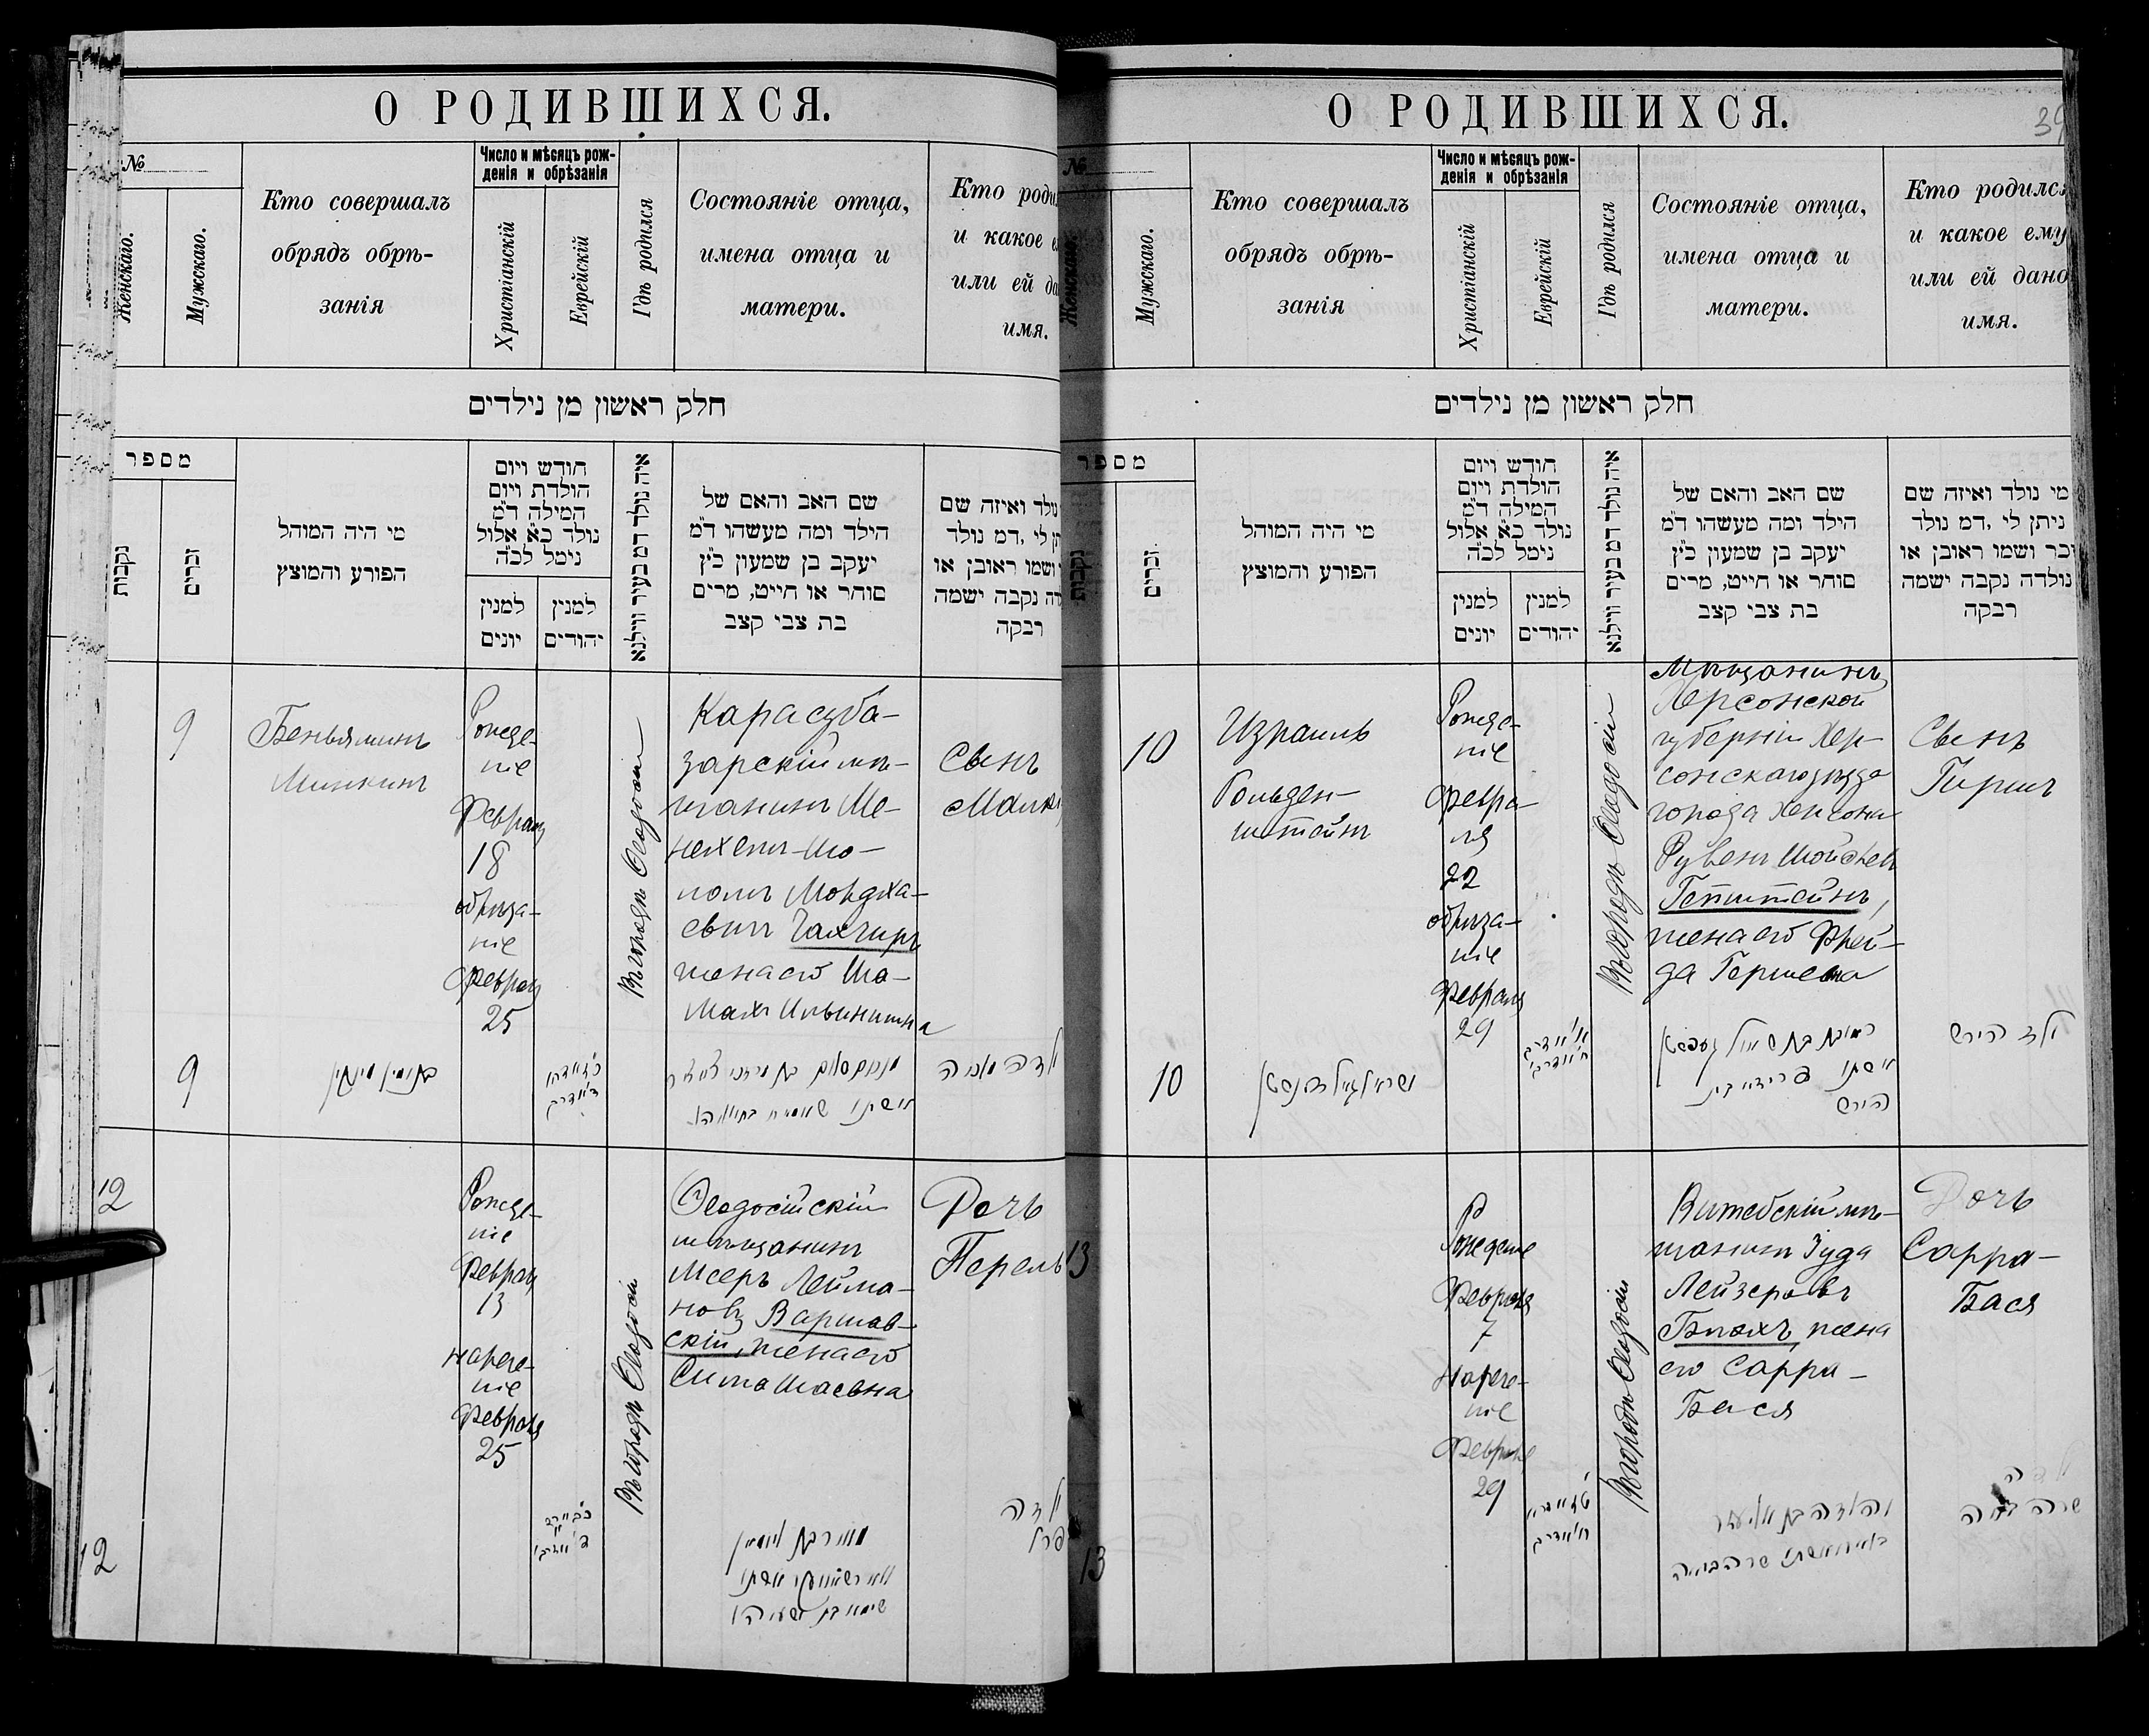 О РОДИВШИХСЯ.
№
Женскаго.
Мужскаго.
Кто совершалъ
обрядъ обрѣ-
занія
Число и мѣсяцъ рож-
денія и обрѣзанія
Христіанскій
Еврейскій
Гдѣ родился
Состояніе отца,
имена отца и
матери.
Кто роди
и какое е
или ей да
имя.
חלק ראשון מן נילדים
מספר
נקבות
זכרים
מי היה המוהל
הפורע והמוצץ
חודש ויום
הולדת ויום
המילה ד״מ
נולד כ״א אלול
נימל לכ״ה
למנין
יונים
למנין
יהודים
איה נולד דמ בעיר ווילנא
שם האב והאם של
הילד ומה מעשהו ד״מ
יעקב בן שמעון כ״ץ
סוחר או חייט, מרים
בת צבי קצב
נולד ואיזה שם
תן לי ,דמ נולד
ושמו ראובן או
דה נקבה ישמה
רבקה
9
Беньяминъ
Минкинъ
Рожде-
ніе
Февраля
18
обрѣза-
ніе
Февраля
25
Въ городѣ Ѳеодосіи
Карасуба-
зарскій мѣ-
щанинъ Ме-
нахемъ-Шо-
ломъ Мордха-
евичъ
жена его Ша-
Сынъ
9
בנימין מינקין
ילד
12
Рожде-
ніе
Февраля
13
нарече-
ніе
Февраля
25
Въ городѣ Ѳеодосіи
Ѳеодосійскій
мѣщанинъ
Мееръ Лейма-
новъ Варшав-
скій, жена его
Сима
Дочь
Перель
12
ילדה
פרל
О РОДИВШИХСЯ.
39
№
Женскаго.
Мужскаго.
Кто совершалъ
обрядъ обрѣ-
занія
Число и мѣсяцъ рож-
денія и обрѣзанія
Христіанскій
Еврейскій
Гдѣ родился
Состояніе отца,
имена отца и
матери.
Кто родился
и какое ему
или ей дано
имя.
חלק ראשון מן נילדים
מספר
נקבות
זכרים
מי היה המוהל
הפורע והמוצץ
חודש ויום
הולדת ויום
המילה ד״מ
נולד כ״א אלול
נימל לכ״ה
למנין
יונים
למנין
יהודים
איה נולד דמ בעיר ווילנא
שם האב והאם של
הילד ומה מעשהו ד״מ
יעקב בן שמעון כ״ץ
סוחר או חייט, מרים
בת צבי קצב
מי נולד ואיזה שם
ניתן לי ,דמ נולד
זכר ושמו ראובן או
נולדה נקבה ישמה
רבקה
10
Израиль
Гольден-
штейнъ
Рожде-
ніе
Февра-
ля
22
обрѣза-
ніе
Февраля
29
Въ городѣ Ѳеодосіи
Мѣщанинъ
Херсонской
губерніи Хер-
сонскаго уѣзда
города Херсона
Рувенъ
Гепштейнъ,
жена его Фрей-
да
Сынъ
Гершъ
10
ילד הירש
אשתו פרידא בת
הירש
13
Рожденіе
Февраля
7
Нарече-
ніе
Февраля
29
Въ городѣ Ѳеодосіи
Витебскій мѣ-
щанинъ Іуда
Лейзеровъ
жена
его Сарра-
Бася
Дочь
Сарра-
Бася
13
ילדה
שרה בתיה